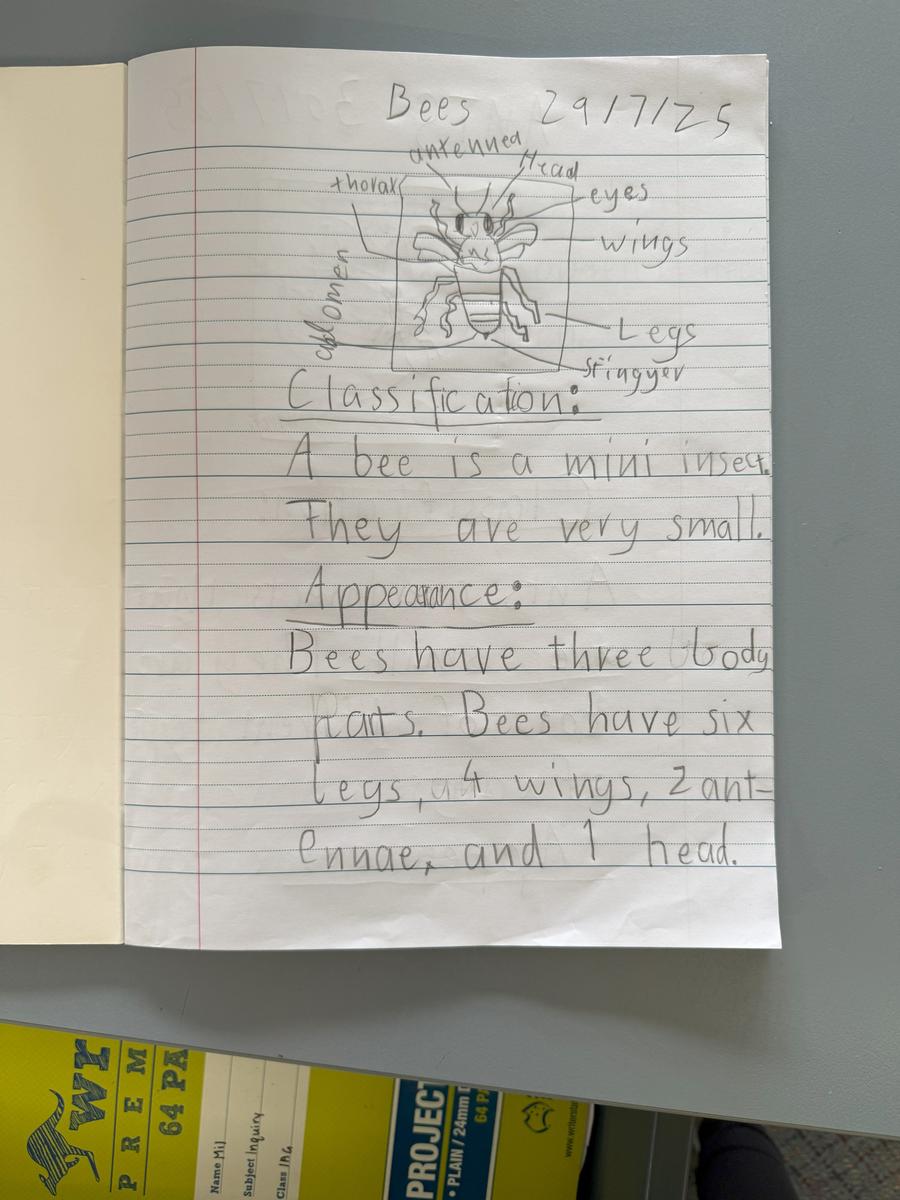 Bees 29/7/25
antenned
Head
thorax
eyes
wings
abdomen
Legs
stingyer
Classification:
A bee is a mini insect.
They are very small.
Appearance:
Bees have three body
Parts. Bees have six
legs, 4 wings, 2 ant-
ennae, and 1 head.
wr
PREM
64 PA
Name Mij
Subject Inquiry
Class 1AG
PROJECT
• PLAIN / 24mm
64 P
www.writer